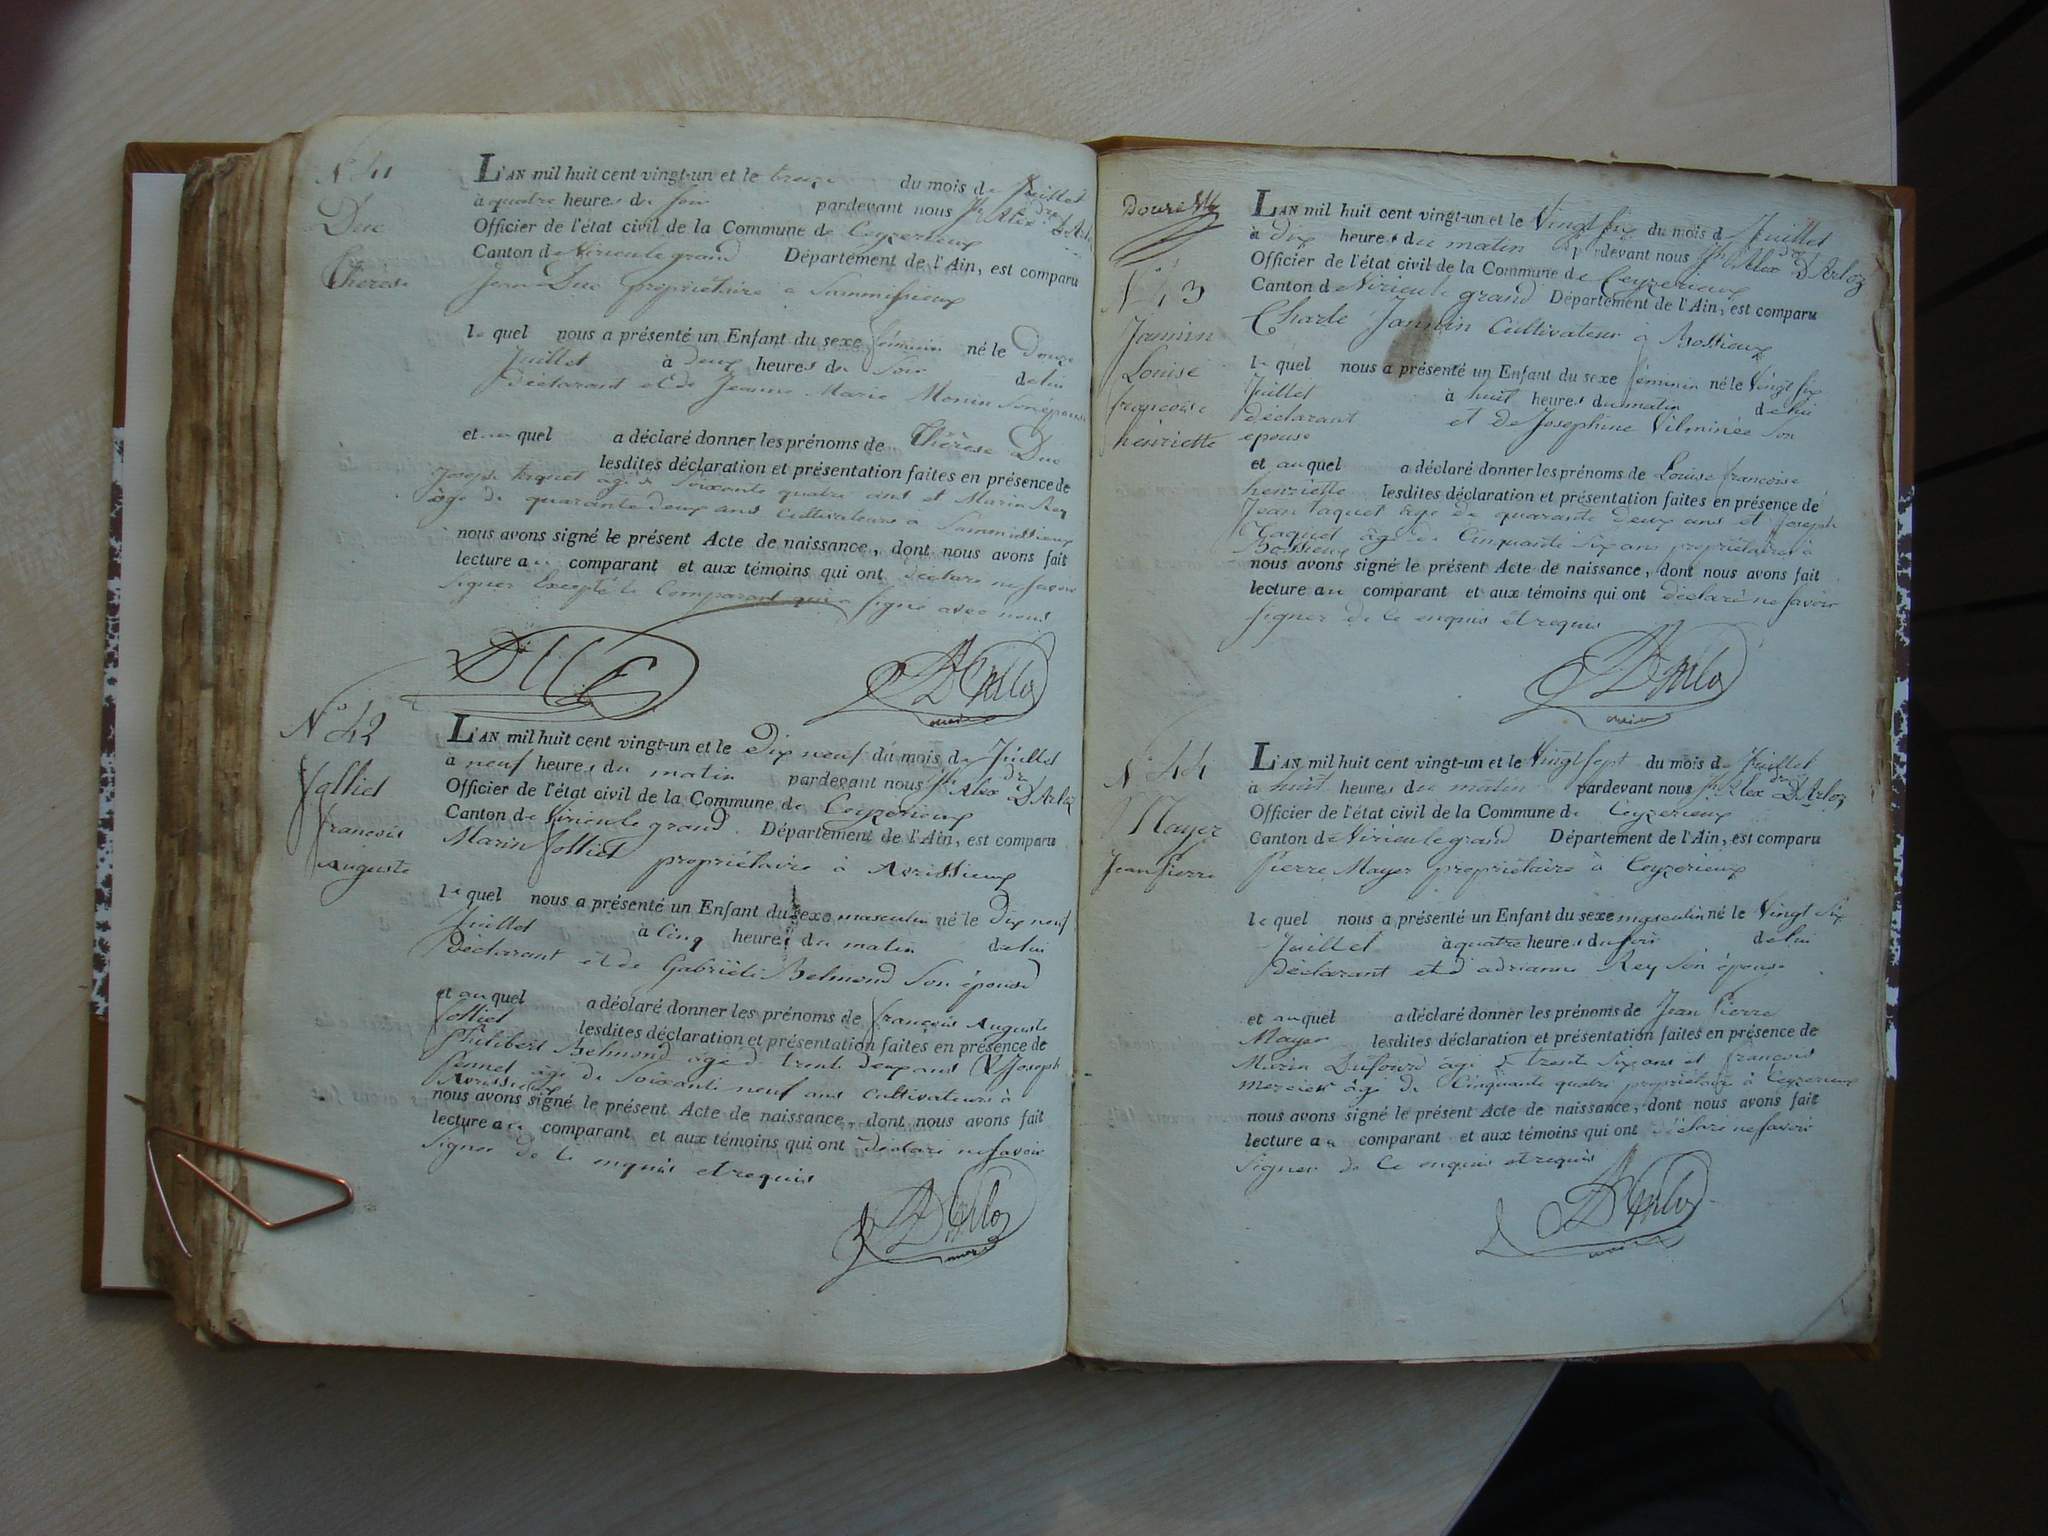 N° 41
Duc
Thérèse
L'AN mil huit cent vingt-un et le treize du mois de Juillet
à quatre heures du soir pardevant nous Jh Alex dre D'Arloz
Officier de l'état civil de la Commune de Ceyzerieux
Canton de Virieu le grand Département de l'Ain, est comparu
Jean Duc propriétaire a Sammissieux
le quel nous a présenté un Enfant du sexe féminin né le Douze
Juillet à deux heures du Soir de lui
déclarant et de Jeanne Marie Monin son épouse
et au quel a déclaré donner les prénoms de Thérèse Duc
lesdites déclaration et présentation faites en présence de
Joseph taquet âgé de Soixante quatre ans et Marin Rey
âgé de quarante deux ans Cultivateurs a Sammissieux
nous avons signé le présent Acte de naissance, dont nous avons fait
lecture au comparant et aux témoins qui ont déclaré ne savoir
signer Excepté le Comparant qui a signé avec nous
Duc
D'Arloz
maire
N° 42
Jolliet
françois
Auguste
L'AN mil huit cent vingt-un et le Dix neuf du mois de Juillet
à neuf heures du matin pardevant nous Jh Alex dre D'Arloz
Officier de l'état civil de la Commune de Ceyzerieux
Canton de Virieu le grand Département de l'Ain, est comparu
Marin Jolliet propriétaire à Avrissieux
le quel nous a présenté un Enfant du sexe masculin né le Dix neuf
Juillet à Cinq heures du matin de lui
déclarant et de Gabriele Belmond son épouse
et au quel a déclaré donner les prénoms de françois Auguste
Jolliet lesdites déclaration et présentation faites en présence de
Philibert Belmond âgé d trente deux ans & Joseph
Pennet âgé de Soixante neuf ans Cultivateurs à
Avrissieux
nous avons signé le présent Acte de naissance, dont nous avons fait
lecture au comparant et aux témoins qui ont déclaré ne savoir
signer de ce enquis et requis
D'Arloz
maire
N° 43
Jannin
Louise
françoise
henriette
L'AN mil huit cent vingt-un et le Vingt six du mois de Juillet
à dix heures du matin pardevant nous Jh Alex dre D'Arloz
Officier de l'état civil de la Commune de Ceyzerieux
Canton de Virieu le grand Département de l'Ain, est comparu
Charle Jannin Cultivateur à Bossieux
le quel nous a présenté un Enfant du sexe féminin né le Vingt six
Juillet à huit heures du matin de lui
déclarant et de Josephine Vilminée son
épouse
et au quel a déclaré donner les prénoms de Louise françoise
henriette lesdites déclaration et présentation faites en présence de
Jean taquet âgé de quarante deux ans et Joseph
taquet âgé de Cinquante six ans propriétaires à
Bossieux
nous avons signé le présent Acte de naissance, dont nous avons fait
lecture au comparant et aux témoins qui ont déclaré ne savoir
signer de ce enquis et requis
D'Arloz
maire
N° 44
Mayer
Jean Pierre
L'AN mil huit cent vingt-un et le Vingt sept du mois de Juillet
à huit heures du matin pardevant nous Jh Alex dre D'Arloz
Officier de l'état civil de la Commune de Ceyzerieux
Canton de Virieu le grand Département de l'Ain, est comparu
Pierre Mayer propriétaire à Ceyzerieux
le quel nous a présenté un Enfant du sexe masculin né le Vingt Six
Juillet à quatre heures du soir de lui
déclarant et d'adrianne Rey son épouse
et au quel a déclaré donner les prénoms de Jean Pierre
Mayer lesdites déclaration et présentation faites en présence de
Marin Dufourd âgé de trente six ans et françois
mercier âgé de Cinquante quatre propriétaire à Ceyzerieux
nous avons signé le présent Acte de naissance, dont nous avons fait
lecture au comparant et aux témoins qui ont déclaré ne savoir
signer de ce enquis et requis
D'Arloz
maire